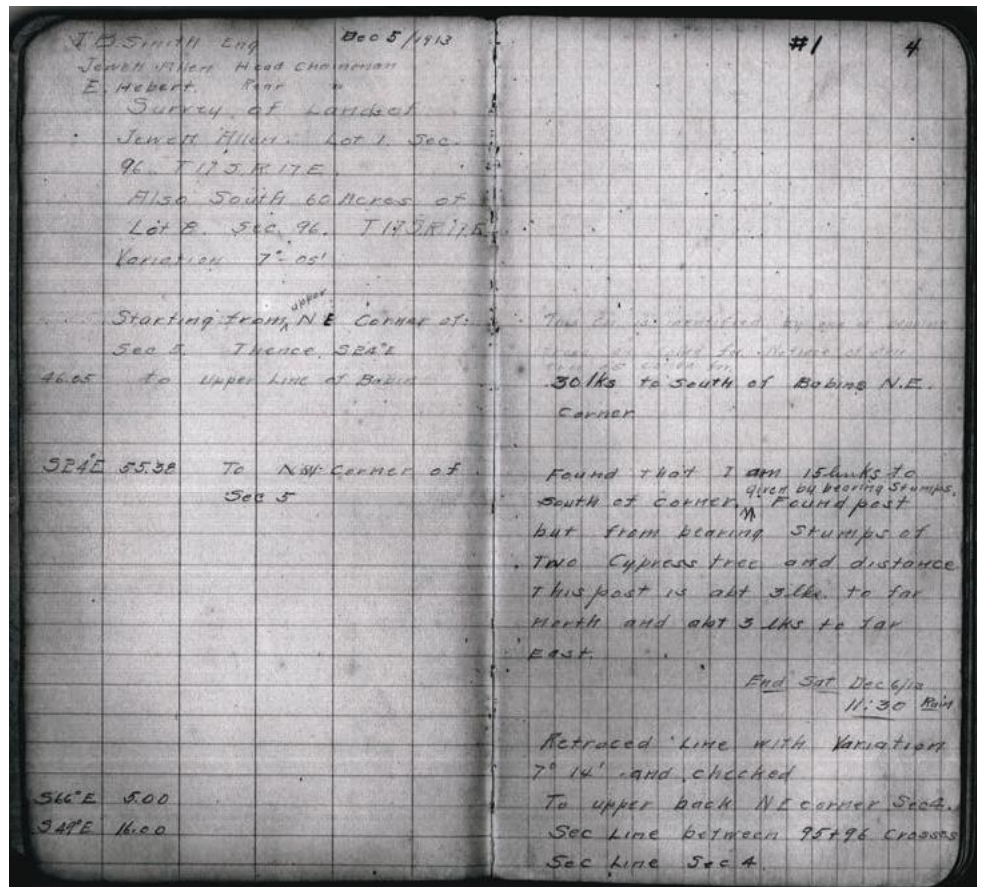 J.B. Smith Eng Dec 5/1913
Jewell Allen Head Chainman
E. Hebert. Rear "
Survey of Lands of
Jewell Allen. Lot 1. Sec.
96. T17S.R17E.
Also South 60 Acres of
Lot 8. Sec 96. T17S.R17E.
Variation 7°-05'
Starting from upper NE Corner of
Sec 5. Thence. S24°E
46.05 to upper Line of Babin
S24°E 55.38 To NW Corner of
Sec 5
S66°E 5.00
S49°E 16.00
#1 4
This is identified by
30 lks to South of Babins N.E.
Corner
Found that I am 15 links to
South of corner. given by bearing Stumps. Found post
but from bearing Stumps of
Two Cypress tree and distance
This post is abt 3 lks. to far
North and abt 3 lks to far
East.
End Sat Dec 6/13
11:30 Rain
Retraced Line with Variation
7° 14' and checked
To upper back NE corner Sec 4.
Sec Line between 95+96 Crosses
Sec Line Sec 4.